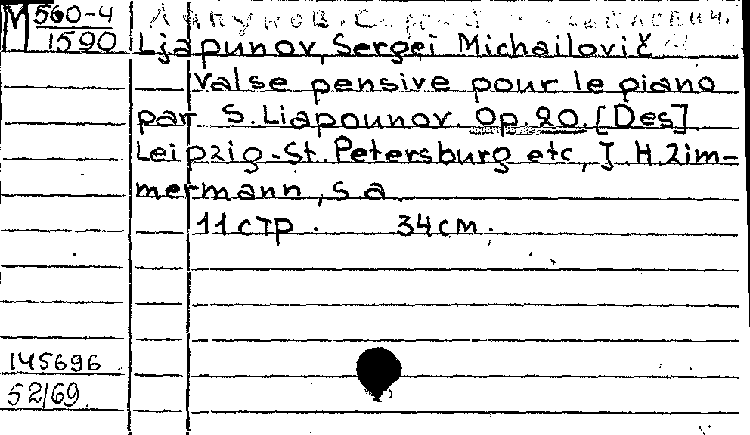 M 560-4
1590
Ляпунов, Сергей Михайлович.
Ljapunov, Sergei Michailovič
Valse pensive pour le piano
par S. Liapounov. Op. 20. [Des]
Leipzig-St. Petersburg etc, J. H. Zim-
mermann, s a
11 стр. 34 см.
145696
52/69